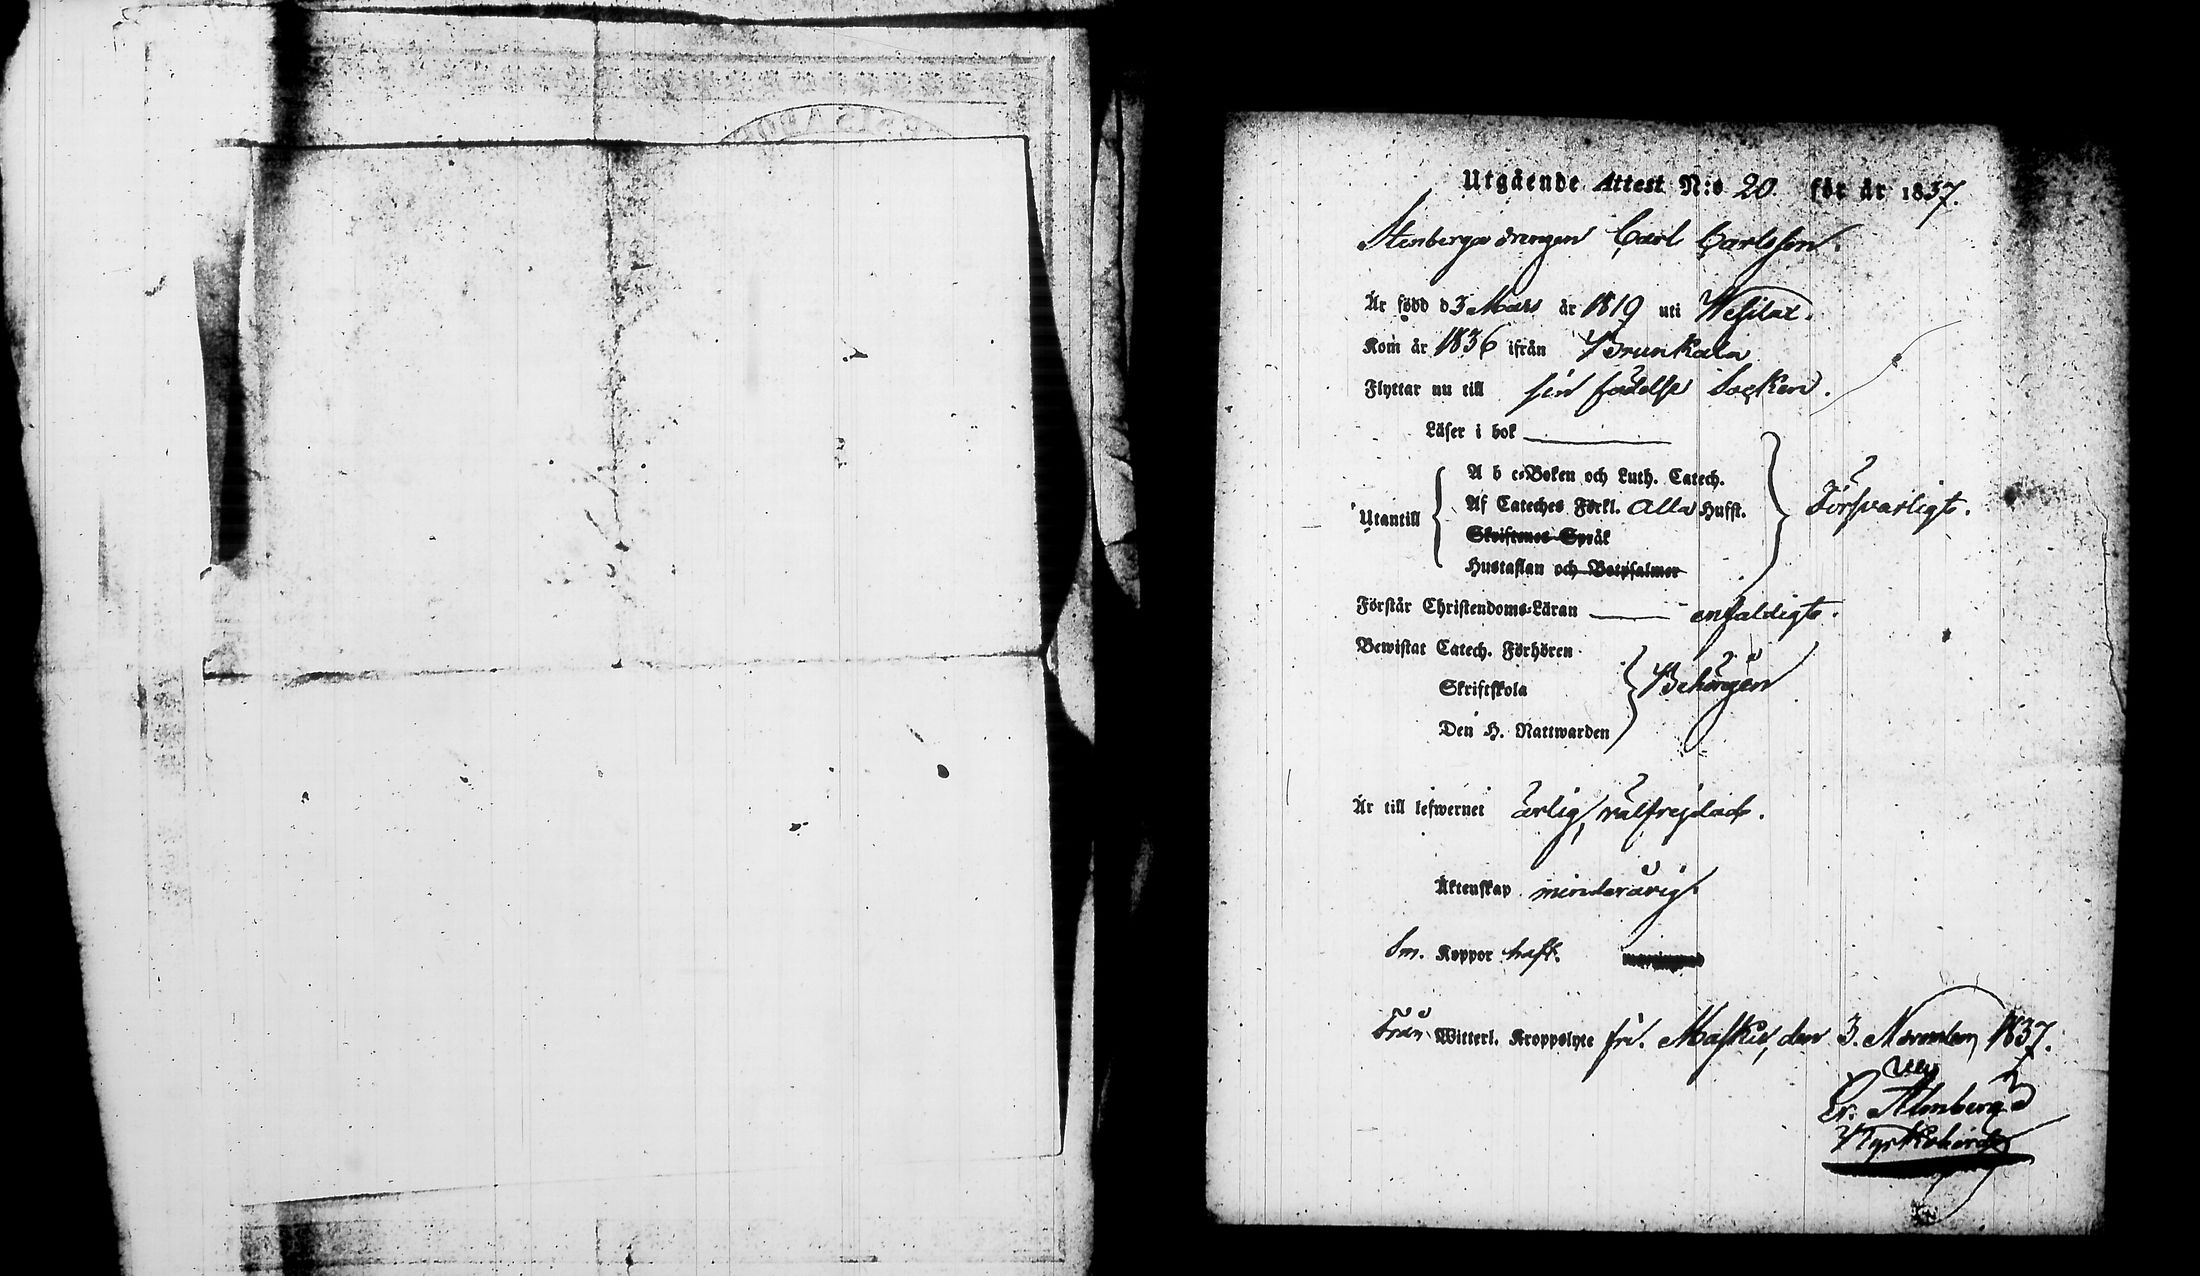 Utgående Attest N:o 20 för år 1837.
Stenberga drengen Carl Carlsson.
Är född d 3 Mars år 1819 uti Wesilax.
Kom år 1836 ifrån Brunkala
Flyttar nu till sin födelse Socken.
Läser i bok
Utantill
A b c-Boken och Luth. Catech.
Af Cateches Förkl. Alla Hufst.
Skriftenes Språk
Hustaflan och Botpsalmer
Försvarligt.
Förstår Christendoms-Läran enfaldigt.
Bewistat Catech. Förhören
Skriftskola
Den H. Nattwarden
Behörigen
Är till lefwernet ärlig, välfrejdad.
Äktenskap minderårig.
Sm. Koppor haft.
Från Witterl. Kroppslyte fri. Masku, den 3. November 1837.
Er. Almberg
Kyrkoherde